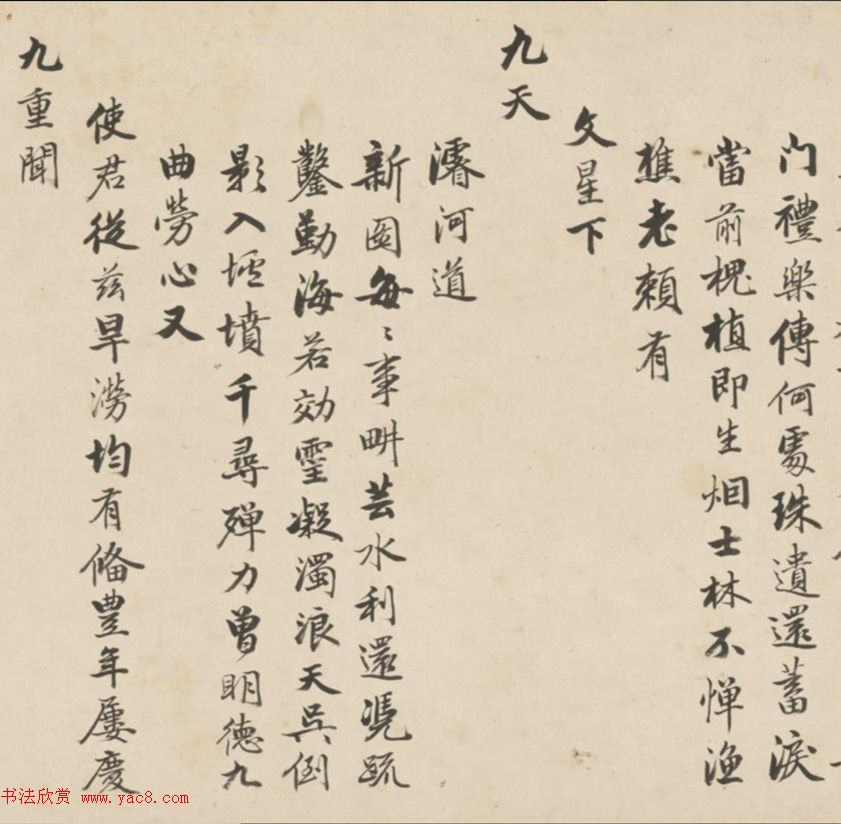 门禮樂傳何處珠遺還蓄淚
當前槐植即生烟士林不憚漁
樵老頼有
文星下
九天
濬河道
新圖每〻事畊芸水利還凴疏
鑿勤海若効霊凝濁浪天吳倒
影入壚墳千尋殫力曾明德九
曲勞心又
使君從茲旱澇均有俻豊年屢慶
九重聞
书法欣赏 www.yac8.com